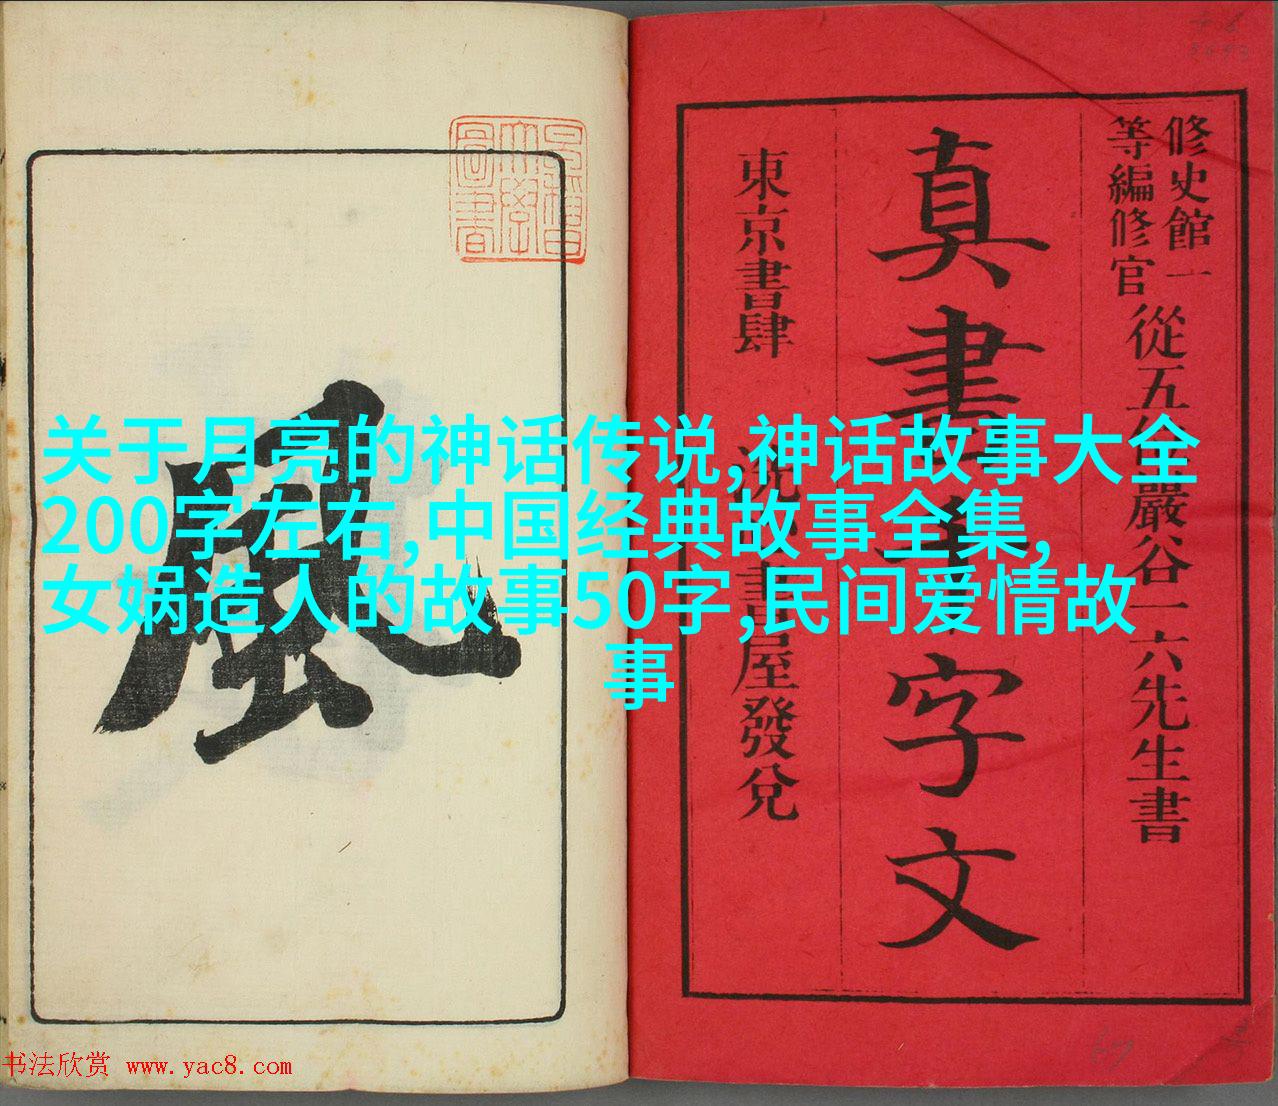 修史館一
等編修官
從五位巖谷一六先生書
真書千字文
東京書肆
屋發兌
風
早稲田
大學
圖書
关于月亮的神话传说,神话故事大全
200字左右,中国经典故事全集,
女娲造人的故事50字,民间爱情故
事
书法欣赏 www.yac8.com